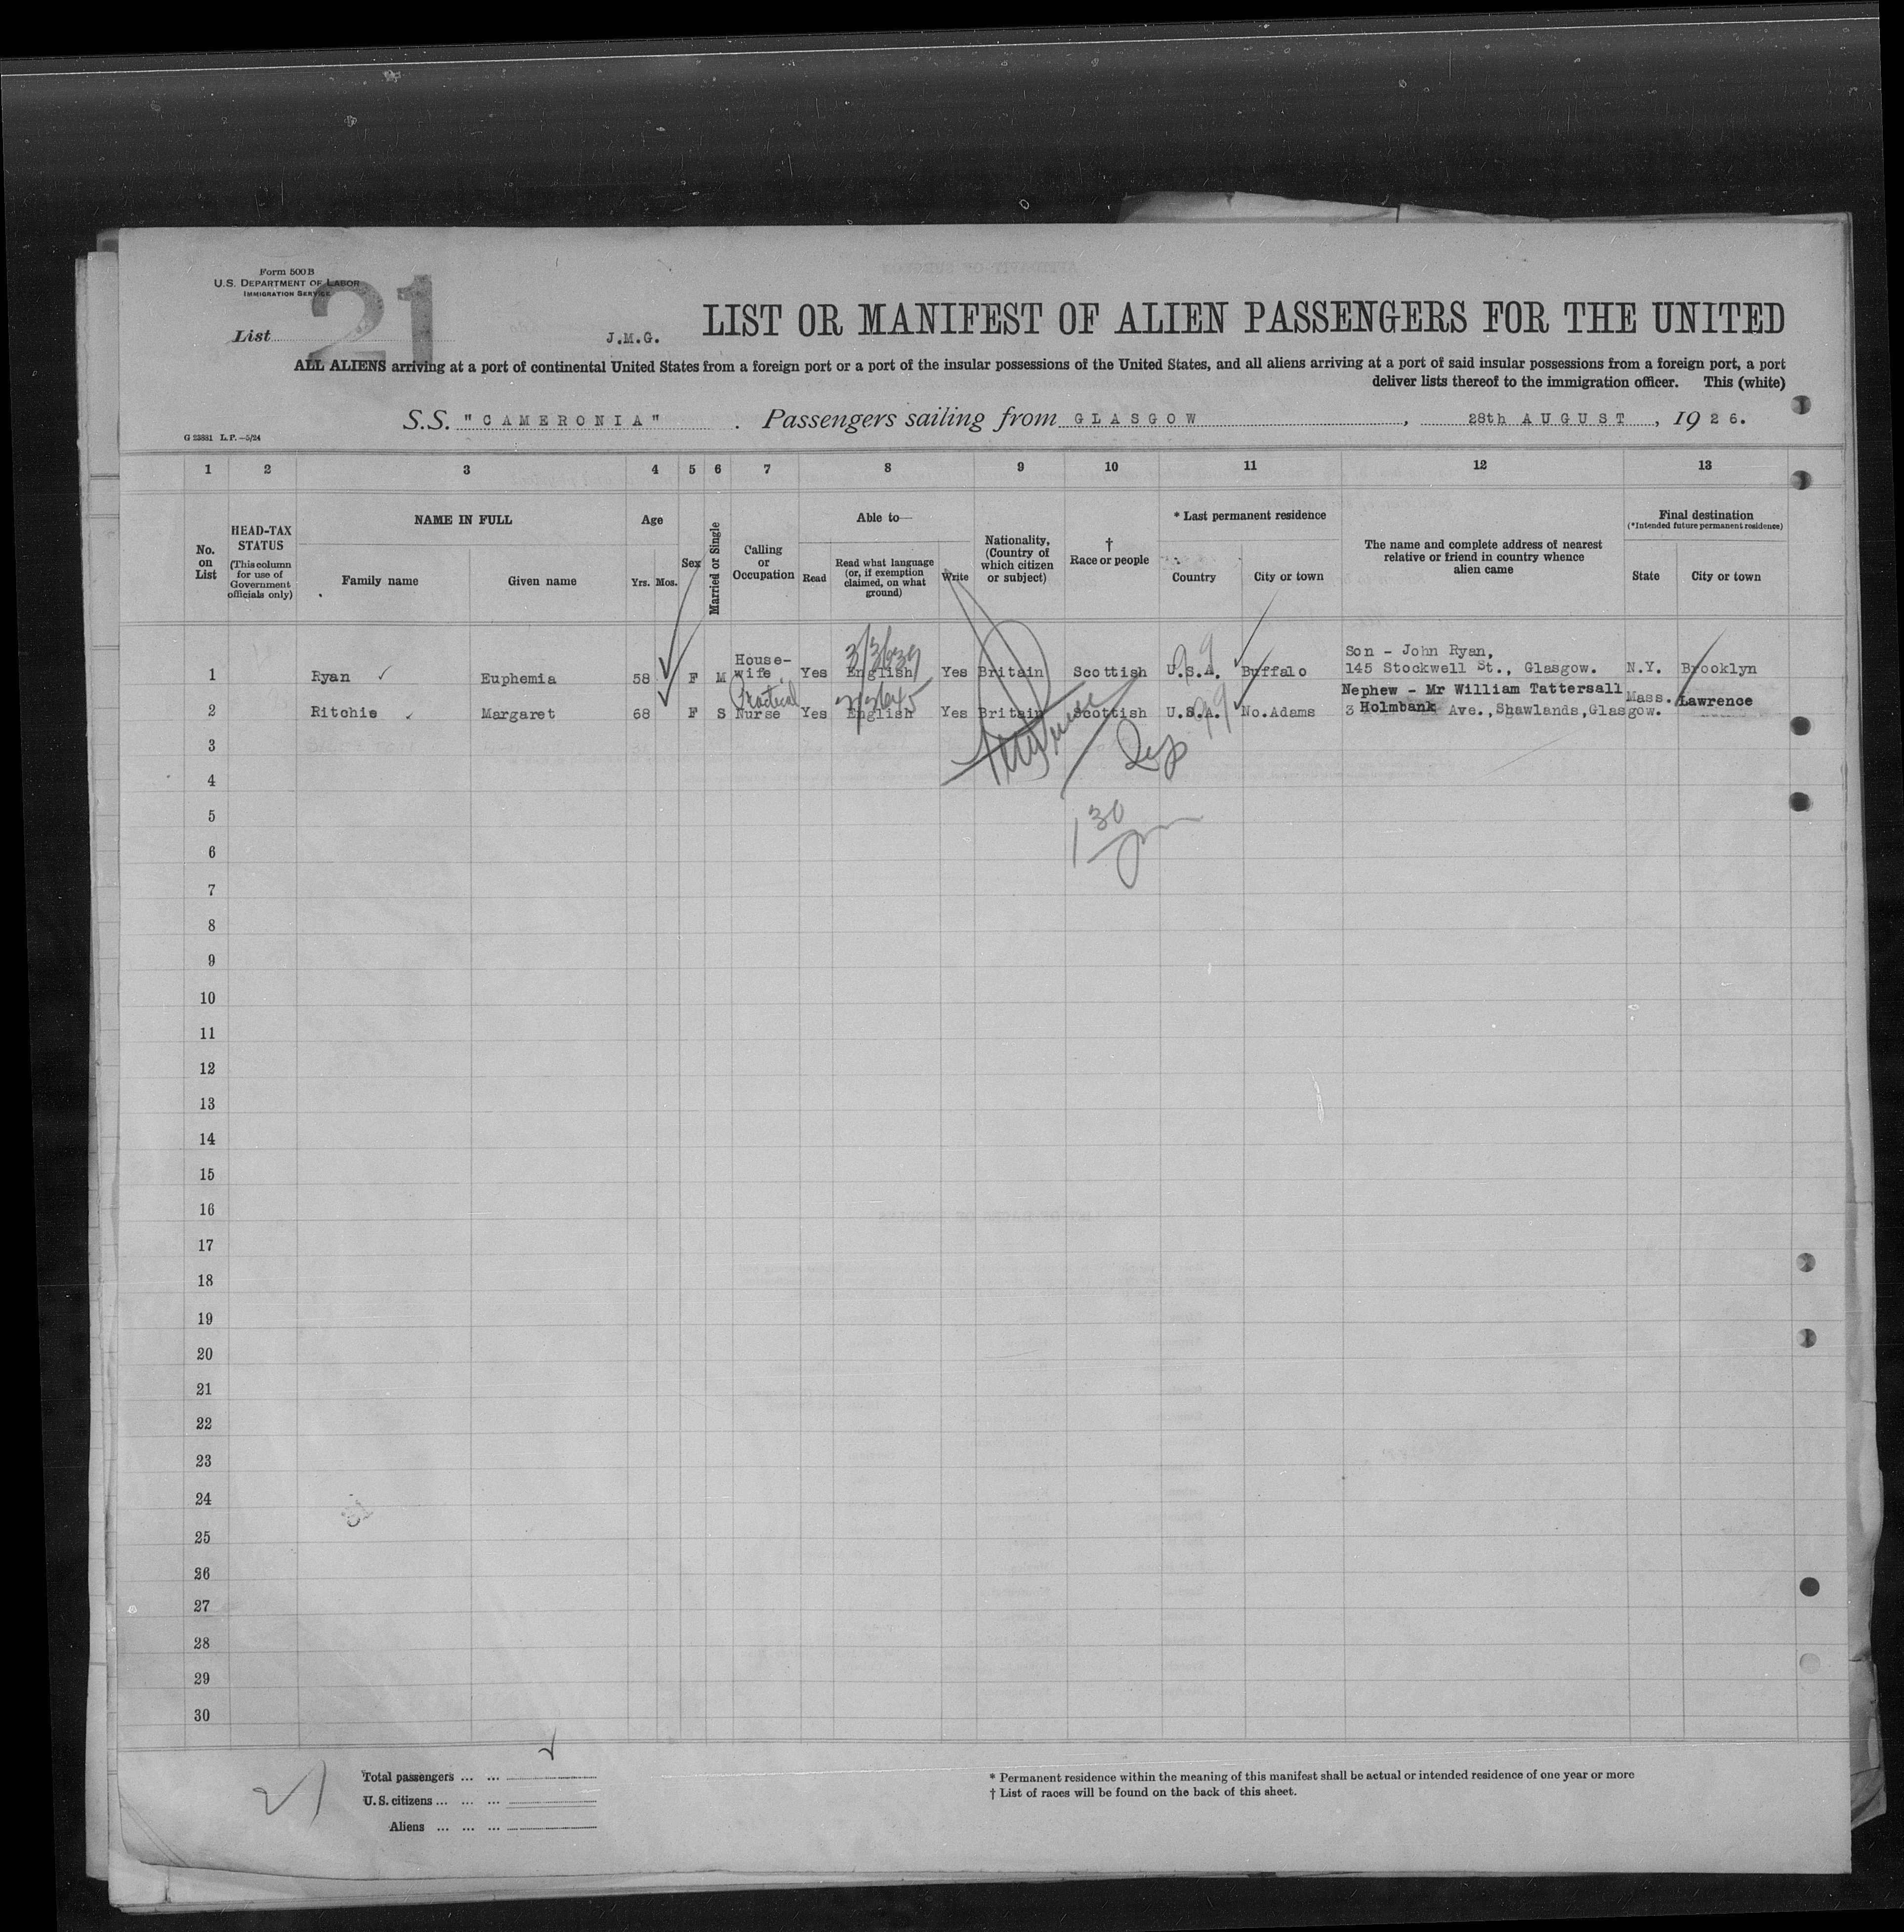 Form 500B
U.S. DEPARTMENT OF LABOR
IMMIGRATION SERVICE
List 21
J.M.G.
LIST OR MANIFEST OF ALIEN PASSENGERS FOR THE UNITED
ALL ALIENS arriving at a port of continental United States from a foreign port or a port of the insular possessions of the United States, and all aliens arriving at a port of said insular possessions from a foreign port, a port
deliver lists thereof to the immigration officer. This (white)
S.S. "CAMERONIA". Passengers sailing from GLASGOW, 28th AUGUST, 1926.
G 23881 L.P.—5/24
1 2 3 4 5 6 7 8 9 10 11 12 13
No. on List
HEAD-TAX STATUS (This column for use of Government officials only)
NAME IN FULL
Family name
Given name
Age
Yrs. Mos.
Sex
Married or Single
Calling or Occupation
Able to—
Read
Read what language (or, if exemption claimed, on what ground)
Write
Nationality, (Country of which citizen or subject)
† Race or people
* Last permanent residence
Country
City or town
The name and complete address of nearest relative or friend in country whence alien came
Final destination
(*Intended future permanent residence)
State
City or town
1 Ryan Euphemia 58 F M House-wife Yes English Yes Britain Scottish U.S.A. Buffalo Son - John Ryan, 145 Stockwell St., Glasgow. N.Y. Brooklyn
2 Ritchie Margaret 68 F S Practical Nurse Yes English Yes Britain Scottish U.S.A. No.Adams Nephew - Mr William Tattersall 3 Holmbank Ave.,Shawlands,Glasgow. Mass. Lawrence
3
4
5
6
7
8
9
10
11
12
13
14
15
16
17
18
19
20
21
22
23
24
25
26
27
28
29
30
130
21
Total passengers ... ...
U.S. citizens ... ... ...
Aliens ... ... ...
* Permanent residence within the meaning of this manifest shall be actual or intended residence of one year or more
† List of races will be found on the back of this sheet.